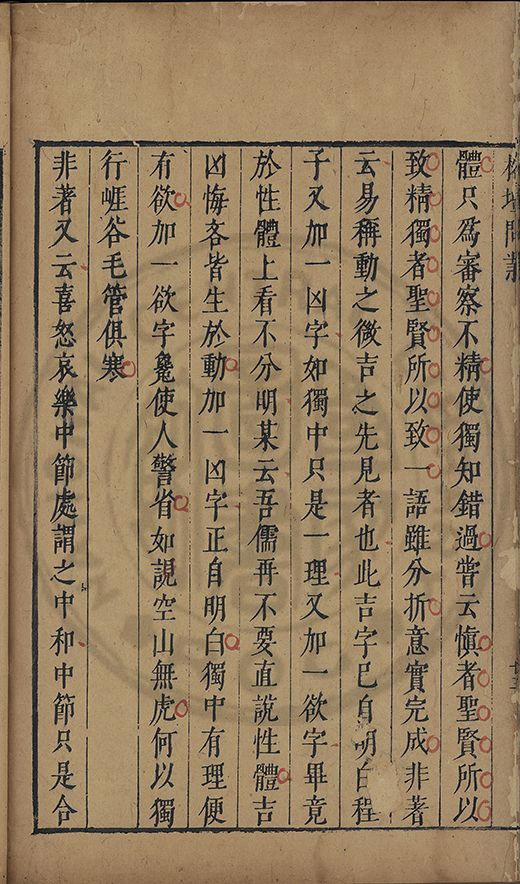 榕壇問業
體只爲審察不精使獨知錯過嘗云愼者聖賢所以
致精獨者聖賢所以致一語雖分折意實完成非著
云易稱動之微吉之先見者也此吉字已自明白程
子又加一凶字如獨中只是一理又加一欲字畢竟
於性體上看不分明某云吾儒再不要直說性體吉
凶悔吝皆生於動加一凶字正自明白獨中有理便
有欲加一欲字毚使人警省如說空山無虎何以獨
行崕谷毛管俱寒
非著又云喜怒哀樂中節處謂之中和中節只是合